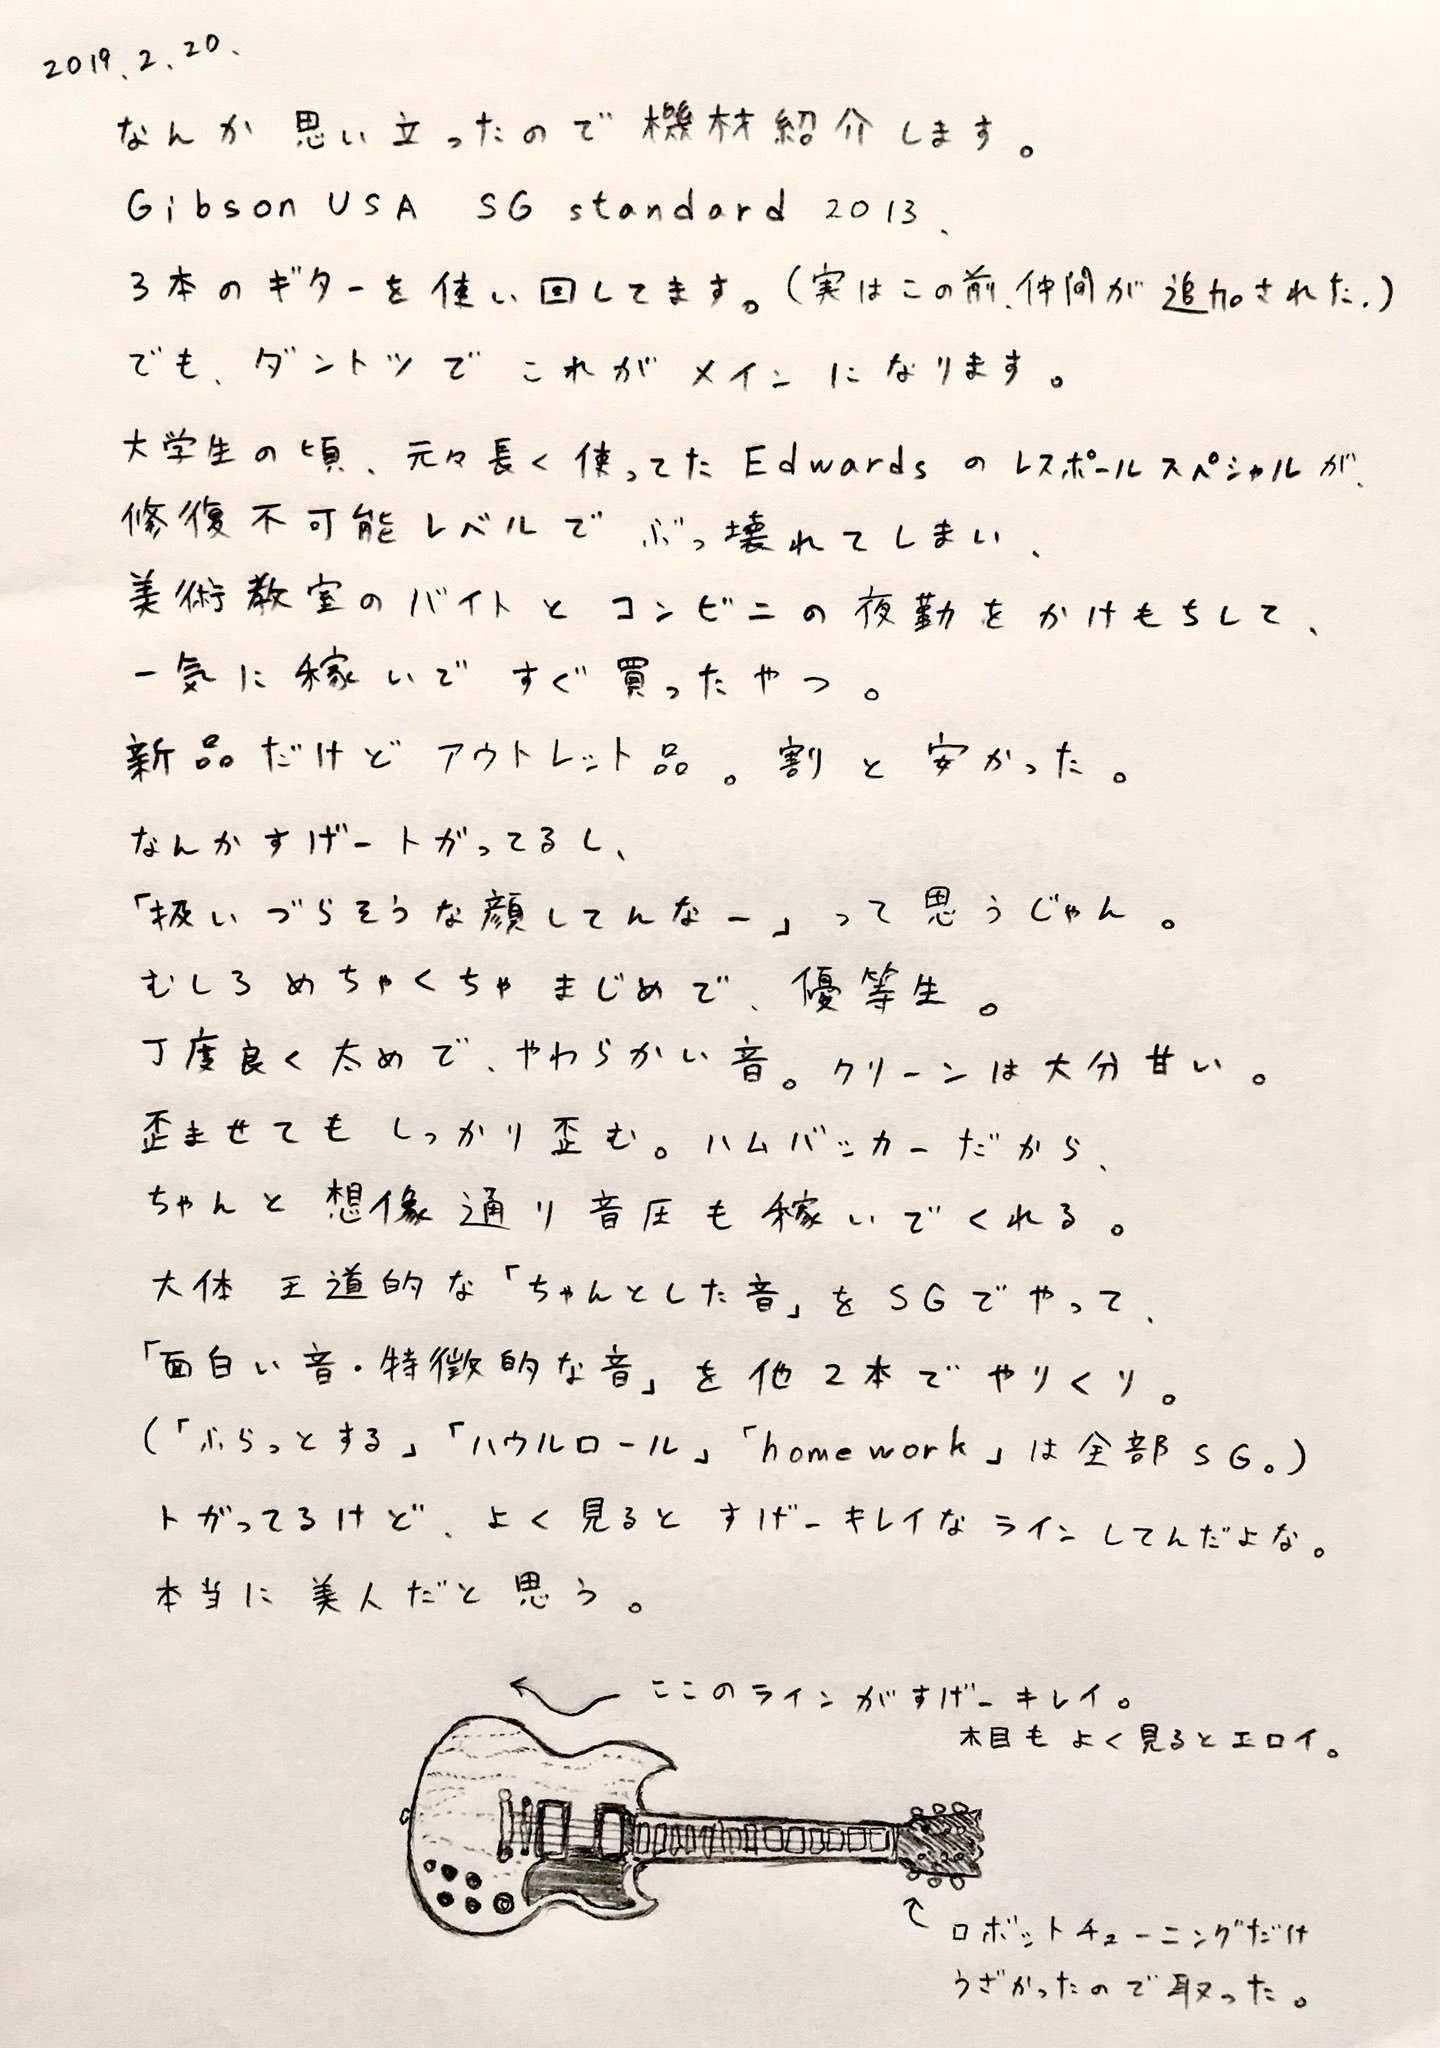 2019.2.20.
なんか思い立ったので機材紹介します。
Gibson USA SG standard 2013、
3本のギターを使い回してます。(実はこの前、仲間が追加された.)
でも、ダントツでこれがメインになります。
大学生の頃、元々長く使ってたEdwardsのレスポールスペシャルが、
修復不可能レベルでぶっ壊れてしまい、
美術教室のバイトとコンビニの夜勤をかけもちして、
一気に稼いですぐ買ったやつ。
新品だけどアウトレット品。割と安かった。
なんかすげートがってるし、
「扱いづらそうな顔してんなー」って思うじゃん。
むしろめちゃくちゃまじめで、優等生。
丁度良く太めで、やわらかい音。クリーンは大分甘い。
歪ませてもしっかり歪む。ハムバッカーだから、
ちゃんと想像通り音圧も稼いでくれる。
大体王道的な「ちゃんとした音」をSGでやって、
「面白い音・特徴的な音」を他2本でやりくり。
(「ぶらっとする」「ハウルロール」「homework」は全部SG。)
トがってるけど、よく見るとすげーキレイなラインしてんだよな。
本当に美人だと思う。
ここのラインがすげーキレイ。
木目もよく見るとエロイ。
ロボットチューニングだけ
うざかったので取った。